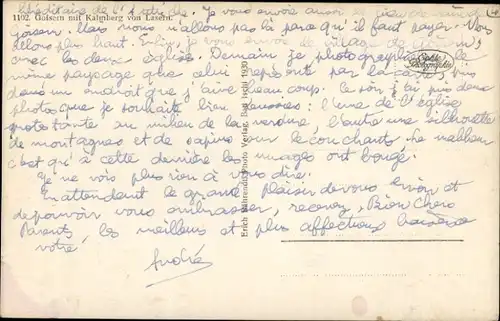 Je vous envois aussi
1102. Goisern mit Kalmberg von Lasern.
goisern. Mais nous n'allons pas là parce qu'il faut payer. Nous
allons plus haut. Enfin, je vous envoi de village de
avec les deux église. Demain je photographie
même paysage que celui représenté par la carte, pris
dans un endroit que j'aime beaucoup. Le soir j'ai pris deux
photos que je souhaite bien réussies: l'une de l'église
protestante au milieu de la verdure, l'autre une silhouette
de montagnes et de sapins sur le couchant. Le malheur
c'est qu'à cette dernière les nuages ont bougé.
Je ne vois plus rien à vous dire.
En attendant le grand plaisir de vous revoir et
de pouvoir vous embrasser, recevez, Bien Chers
Parents, les meilleurs et plus affectueux baisers
votre
André
Erich Bährendt, Photo Verlag, Bad Ischl 1930
Echte Photographie